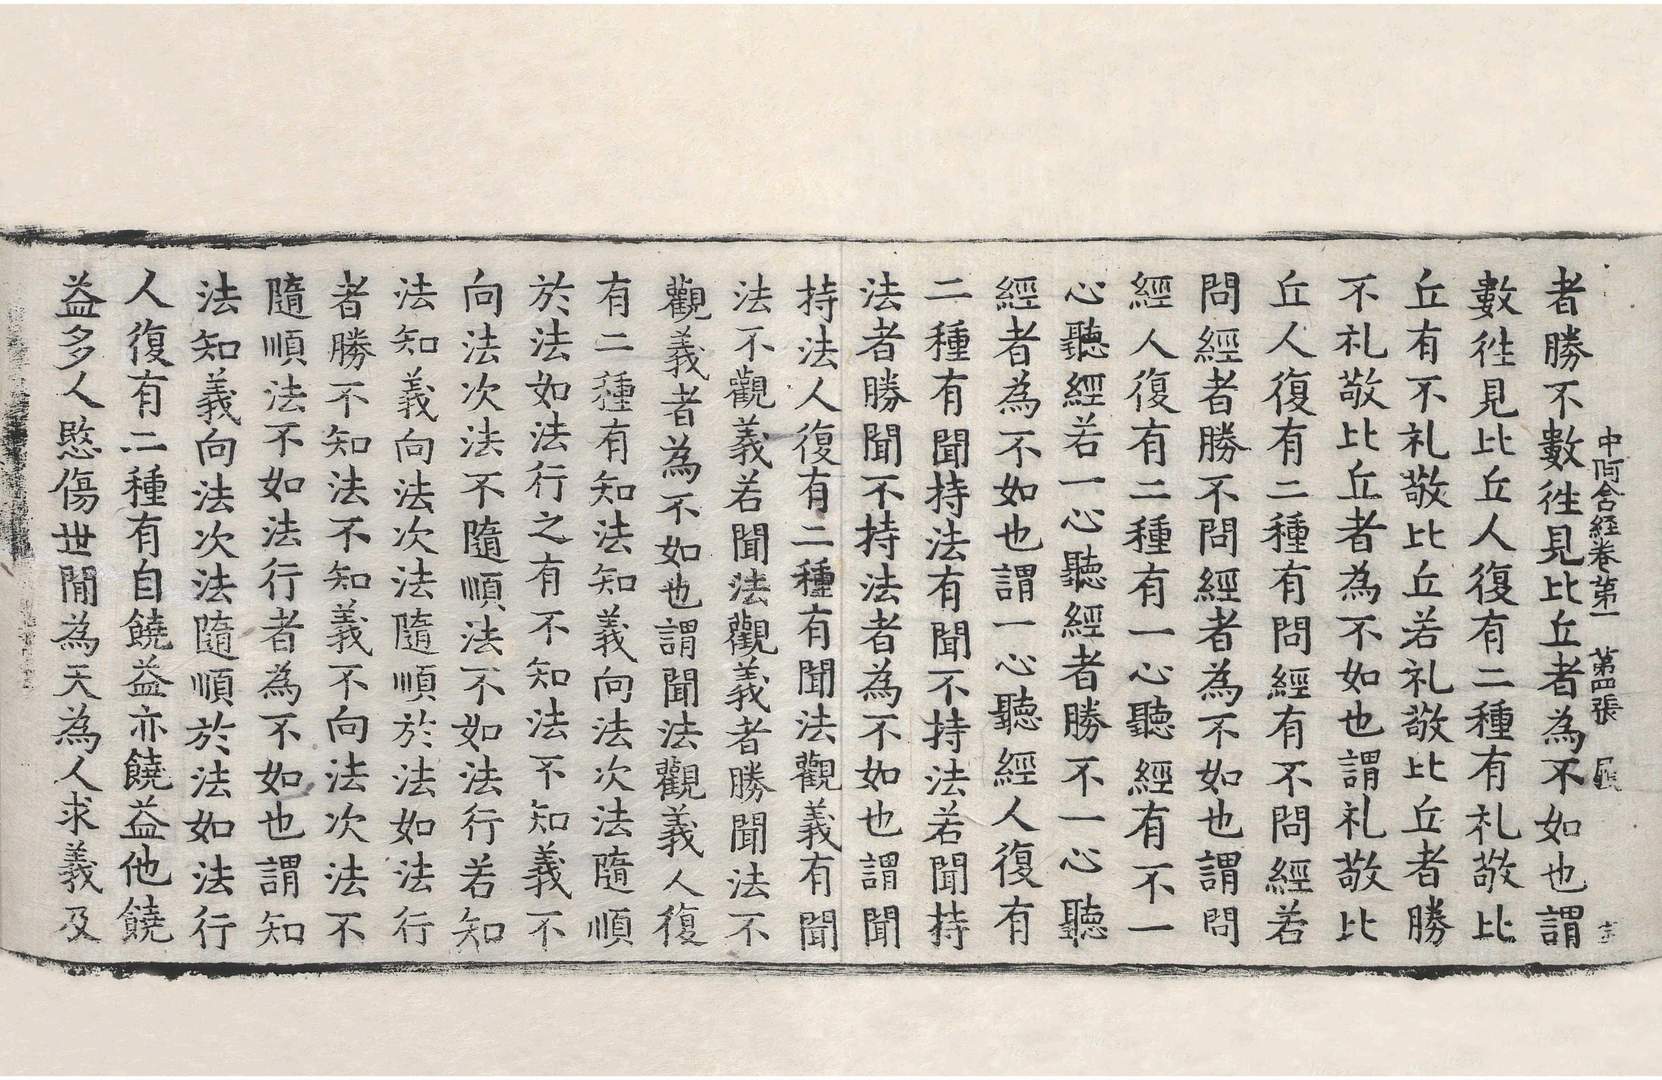 中阿含經卷苐一 第四張
者勝不數徃見比丘者為不如也謂
數徃見比丘人復有二種有礼敬比
丘有不礼敬比丘若礼敬比丘者勝
不礼敬比丘者為不如也謂礼敬比
丘人復有二種有問經有不問經若
問經者勝不問經者為不如也謂問
經人復有二種有一心聽經有不一
心聽經若一心聽經者勝不一心聽
經者為不如也謂一心聽經人復有
二種有聞持法有聞不持法若聞持
法者勝聞不持法者為不如也謂聞
持法人復有二種有聞法觀義有聞
法不觀義若聞法觀義者勝聞法不
觀義者為不如也謂聞法觀義人復
有二種有知法知義向法次法隨順
於法如法行之有不知法不知義不
向法次法不隨順法不如法行若知
法知義向法次法隨順於法如法行
者勝不知法不知義不向法次法不
隨順法不如法行者為不如也謂知
法知義向法次法隨順於法如法行
人復有二種有自饒益亦饒益他饒
益多人愍傷世間為天為人求義及